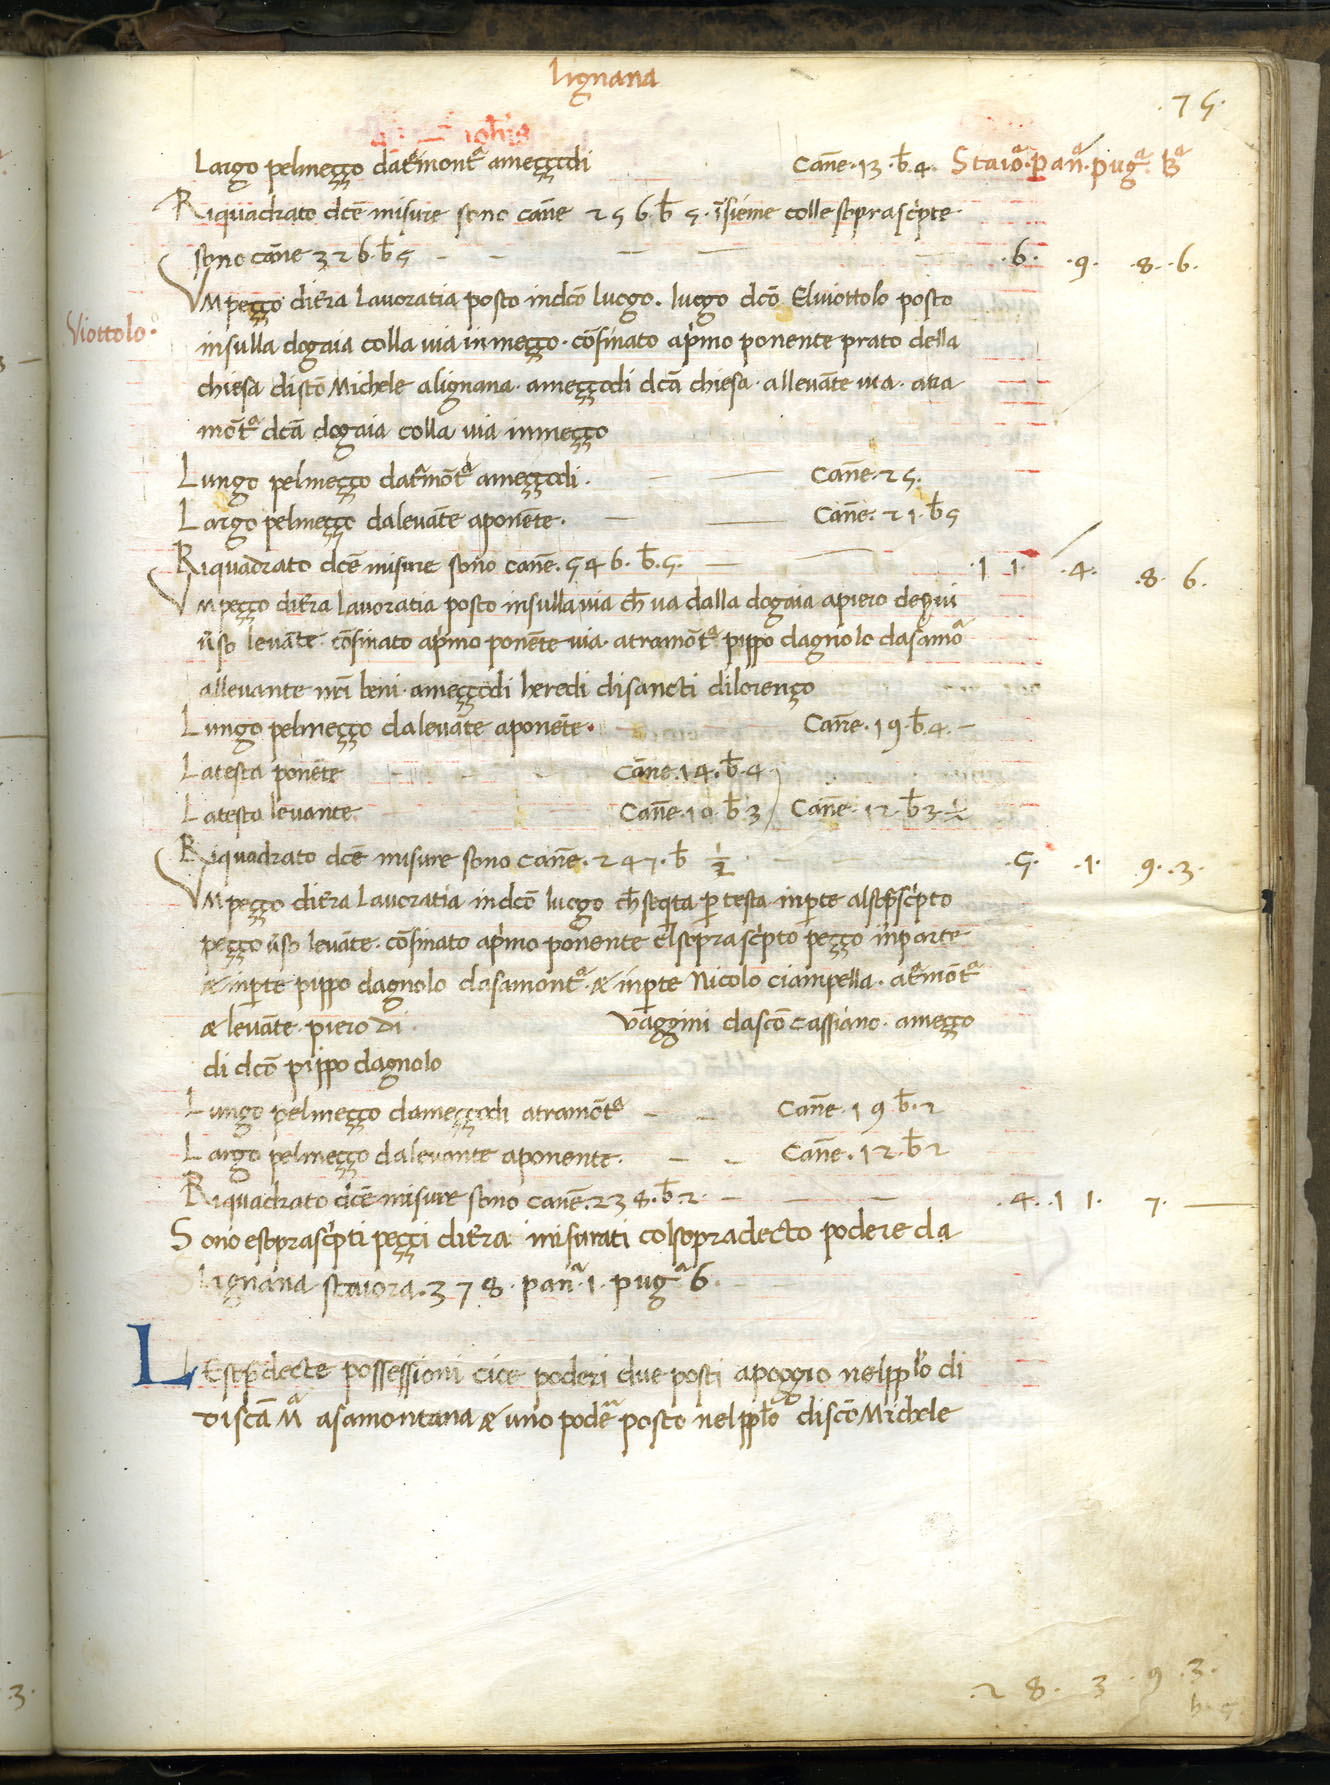 lignana
.75.
Largo pelmeggo datr̄montᵃ ameggodi Can̄e .13. b̄ 4. Staioᵃ. panᵃ. pugᵃ. Bᵃ
Riquadrato dc̄e misure sono can̄e 256 b̄ 5. īsieme colle soprascp̄te
sono can̄e 326. b̄ 5 .6. .9. .8. .6.
Vn peggo dit̄ra lavoratia posto indc̄o luogo. luogo dc̄o Elviottolo posto
Viottolo.
insulla dogaia colla via in meggo. cōfinato ap̄mo ponente prato della
chiesa disc̄o Michele alignana. ameggodi dc̄a chiesa. allevāte via. atra
mōtᵃ dc̄a dogaia colla via inmeggo
Lungo pelmeggo datr̄mōtᵃ ameggodi. Can̄e. 25.
Largo pelmeggo dalevāte aponēte. Can̄e. 21. b̄ 5
Riquadrato dc̄e misure sono can̄e. 546. b̄. 5. .11. .4. .8. 6.
Vn peggo dit̄ra lavoratia posto insulla via ch̄ va dalla dogaia apiero
v̄so levāte. cōfinato ap̄mo ponēte via. atramōtᵃ pippo dagnolo dasamōᵃ
allevante nr̄i beni. ameggodi heredi disancti dilorengo
Lungo pelmeggo dalevāte aponēte. Can̄e. 19. b̄. 4.
Latesta ponēte Cān̄e. 14. b̄. 4
Latesta levante. Can̄e. 10. b̄ 3 Can̄e. 12. b̄ 3. ½
Riquadrato dc̄e misure sono Can̄e. 247. b̄ ½ .5. .1. 9. .3.
Vn peggo dit̄ra lavoratia indc̄o luogo ch̄ seq̄ta p̄ testa inp̄te alsop̄scp̄to
peggo v̄so levāte. cōfinato ap̄mo ponente elsoprascp̄to peggo inparte
& inp̄te pippo dagnolo dasamontᵃ. & inp̄te Nicolo ciampella. atr̄mōtᵃ
& levāte. piero di vāggini dasc̄o cassiano. ameggo
di dc̄o pippo dagnolo
Lungo pelmeggo dameggodi atramōtᵃ Can̄e. 19 b̄. 2
Largo pelmeggo dalevante aponente. Can̄e. 12. b̄ 2
Riquadrato dc̄e misure sono can̄e. 238. b̄. 2. .4. .11. 7.
Sono esoprascp̄ti peggi dit̄ra misurati colsopradecto podere da
lignana staiora. 378. panᵃ. 1. pugᵃ. 6.
LEsop̄decte possessioni cioe poderi due posti apoggio nelpplō di
disc̄a Mᵃ asamontana & uno podēᵃ posto nelpplō disc̄o Michele
.28. 3 .9 .3.